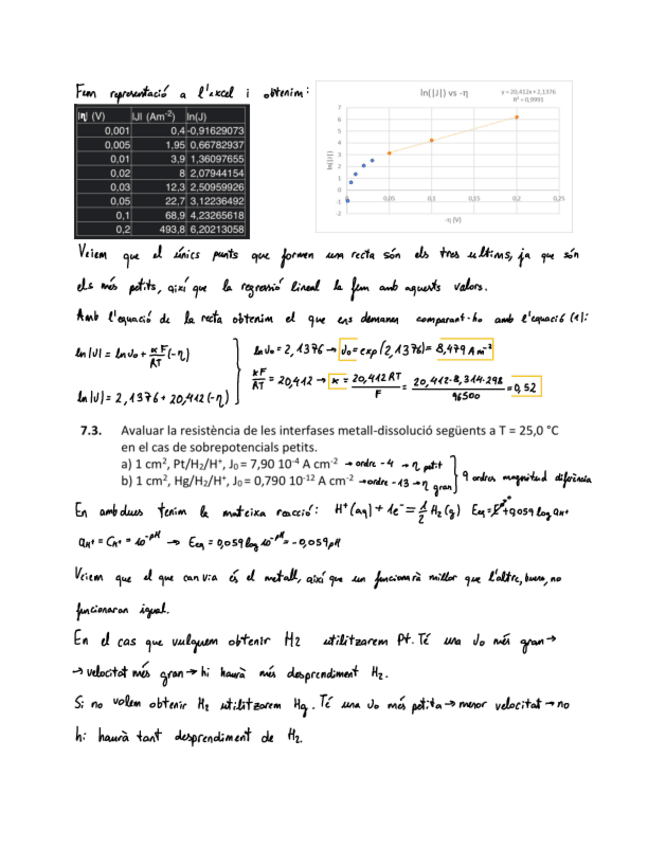 Fem representació a l'excel i obtenim:
|η| (V) |J| (Am⁻²) ln(J)
0,001 0,4 -0,91629073
0,005 1,95 0,66782937
0,01 3,9 1,36097655
0,02 8 2,07944154
0,03 12,3 2,50959926
0,05 22,7 3,12236492
0,1 68,9 4,23265618
0,2 493,8 6,20213058
ln(|J|) vs -η
y = 20,412x + 2,1376
R² = 0,9991
ln(|J|)
7
6
5
4
3
2
1
0
-1
-2
0,05 0,1 0,15 0,2 0,25
-η (V)
Veiem que el únics punts que formen una recta són els tres ultims, ja que són
els més petits, així que la regressió lineal la fem amb aquests valors.
Amb l'equació de la recta obtenim el que ens demanen comparant-ho amb l'equació (1):
ln|J| = lnJ₀ + αF/RT (-η)
ln|J| = 2,1376 + 20,412(-η)
lnJ₀ = 2,1376 → J₀ = exp(2,1376) = 8,479 Am⁻²
αF/RT = 20,412 → α = 20,412RT/F = 20,412·8,314·298/96500 = 0,52
7.3. Avaluar la resistència de les interfases metall-dissolució següents a T = 25,0 °C
en el cas de sobrepotencials petits.
a) 1 cm², Pt/H₂/H⁺, J₀ = 7,90 10⁻⁴ A cm⁻² → ordre -4 → η petit
b) 1 cm², Hg/H₂/H⁺, J₀ = 0,790 10⁻¹² A cm⁻² → ordre -13 → η gran
9 ordres magnitud diferència
En ambdues tenim la mateixa reacció: H⁺(aq) + 1e⁻ = 1/2 H₂(g) Eeq = E° + 0,059 log aH⁺
aH⁺ = CH⁺ = 10⁻ᵖᴴ → Eeq = 0,059 log 10⁻ᵖᴴ = -0,059pH
Veiem que el que canvia és el metall, així que un funcionarà millor que l'altre, bueno, no
funcionaran igual.
En el cas que vulguem obtenir H₂ utilitzarem Pt. Té una J₀ més gran →
→ velocitat més gran → hi haurà més despreniment H₂.
Si no volem obtenir H₂ utilitzarem Hg. Té una J₀ més petita → menor velocitat → no
hi haurà tant despreniment de H₂.